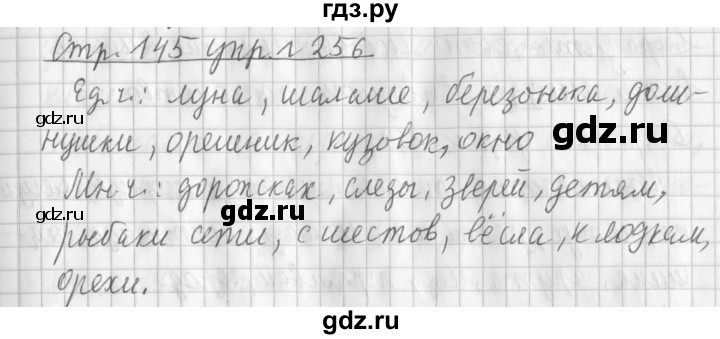 гдз.ру
Стр. 145 упр. 256
Ед.ч.: луна, шалаше, березонька, доли-
нушки, орешник, кузовок, окно
gdz.ru
gdz.ru
Мн.ч.: дорожках, следы, зверей, детям,
gdz.ru
рыбаки сети, с шестов, вёсла, к лодкам,
орехи.
gdz.ru
gdz.ru